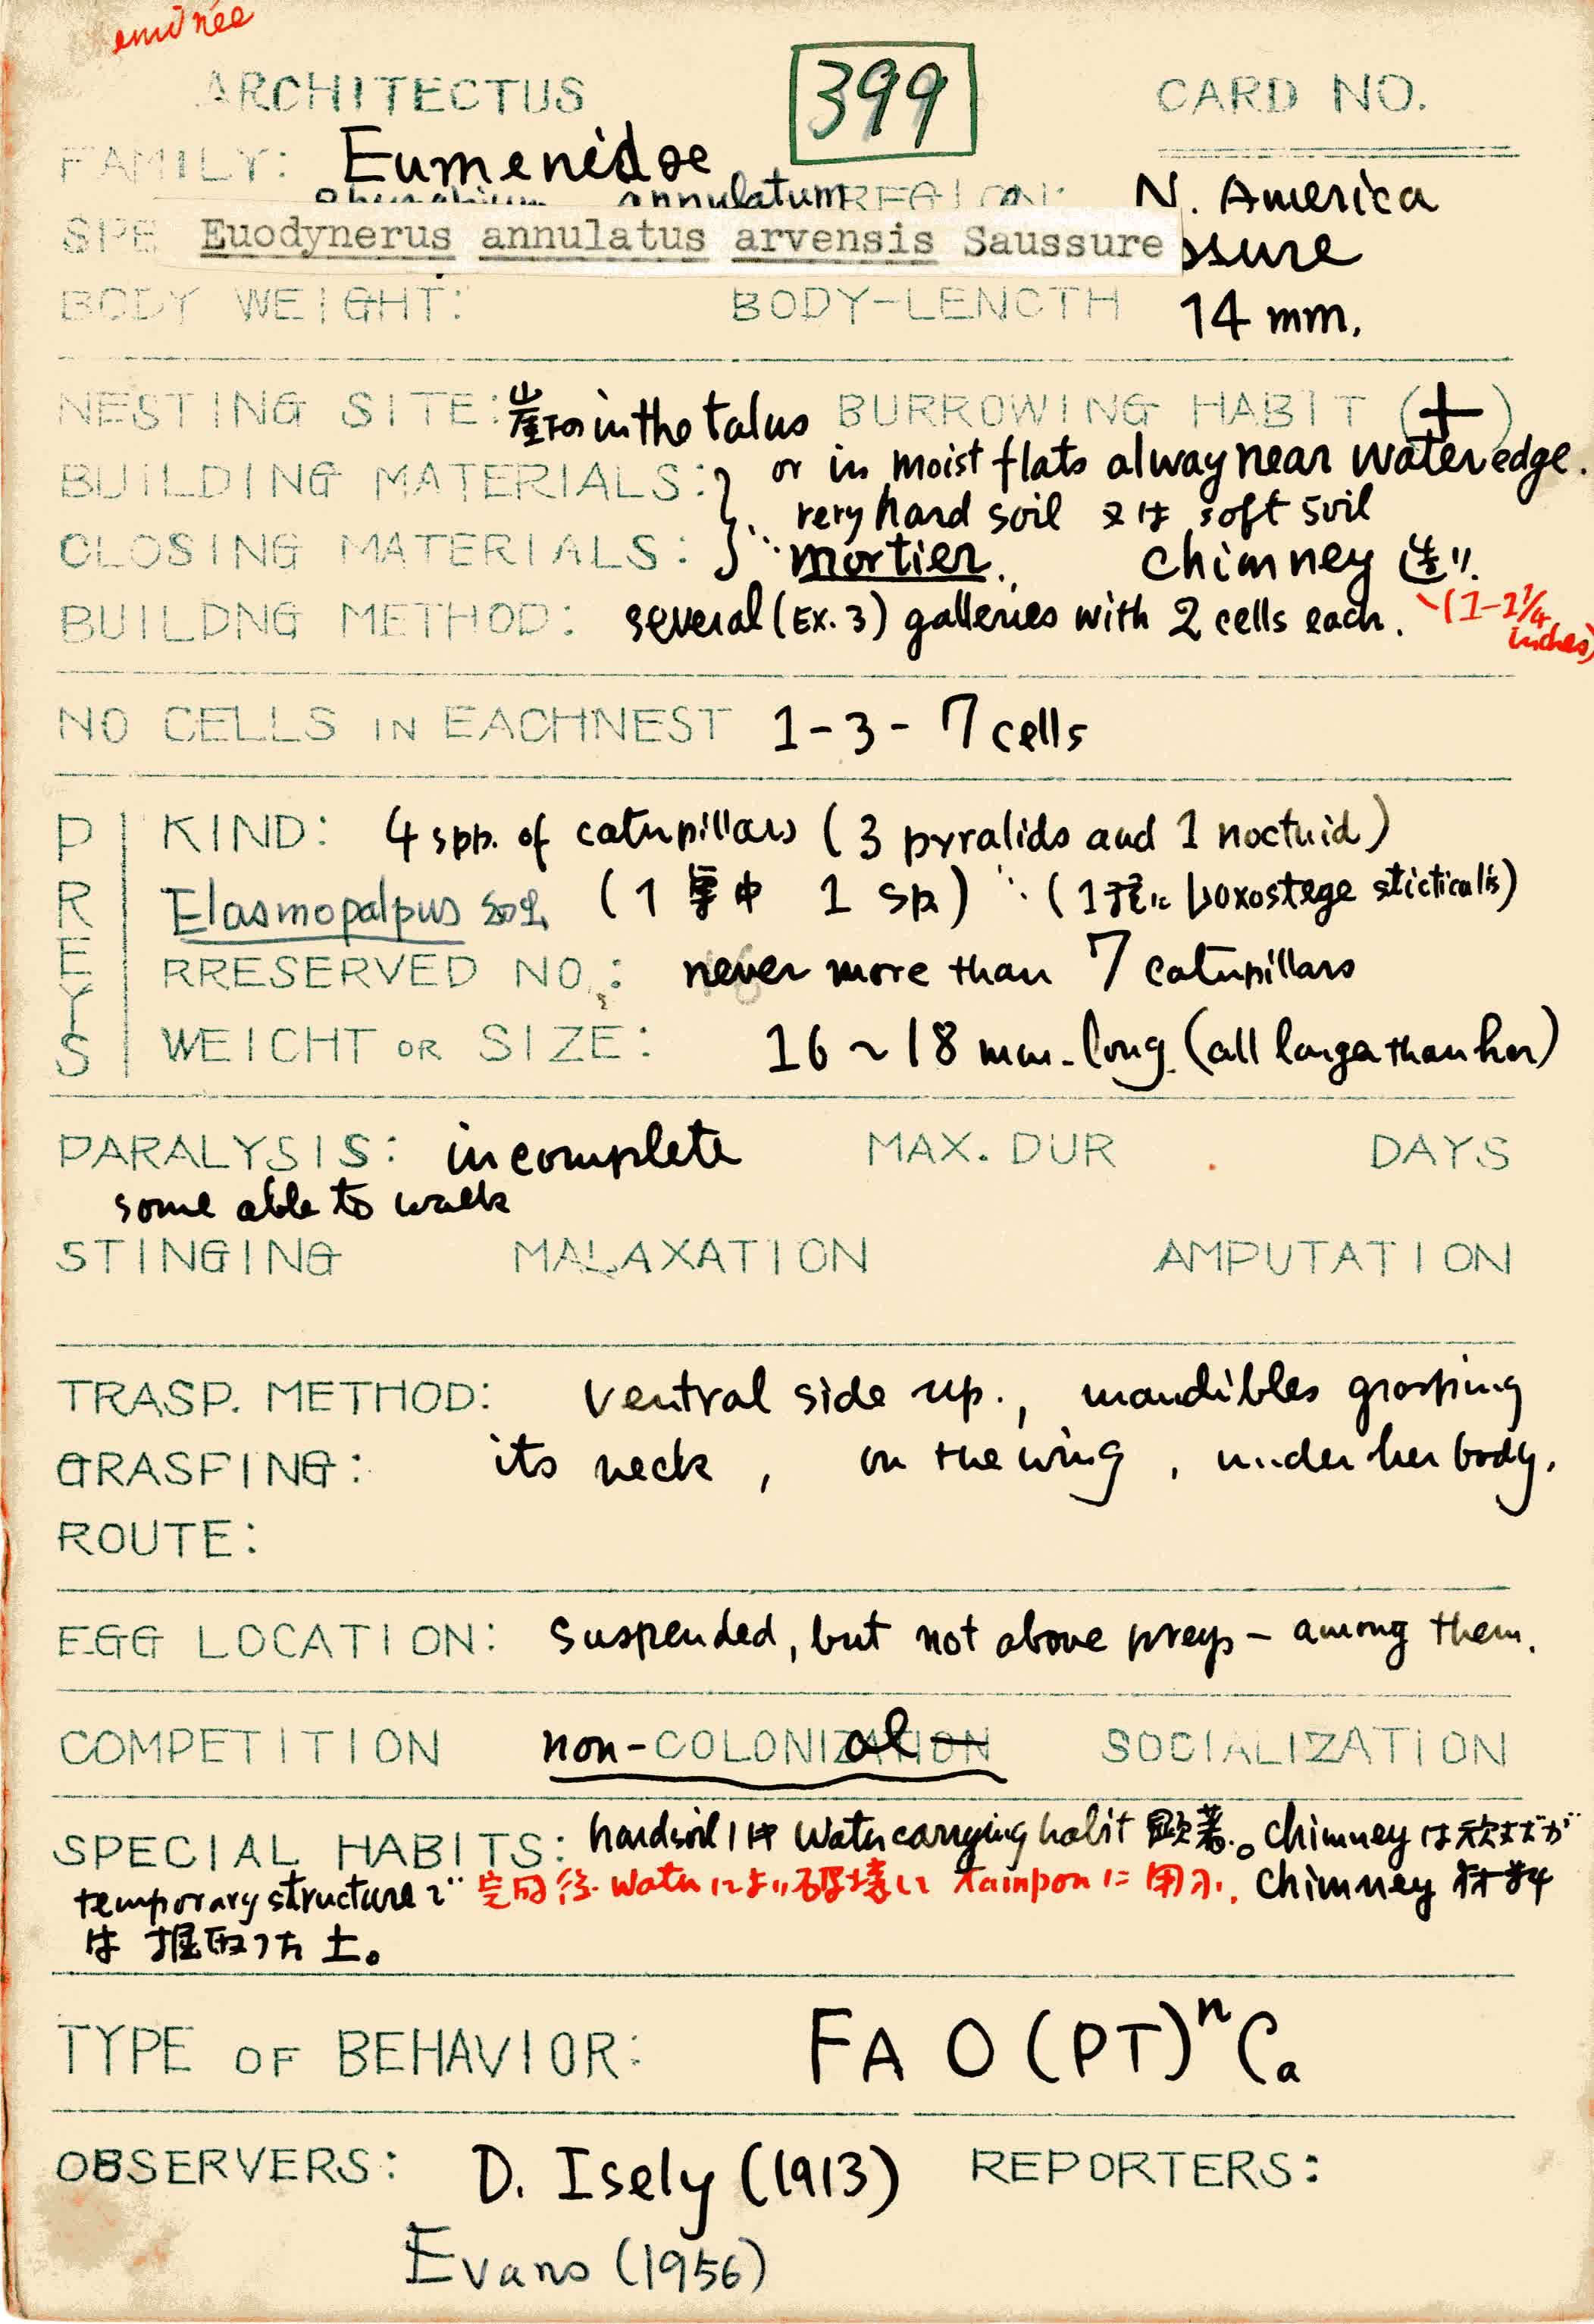 ARCHITECTUS 399 CARD NO.
FAMILY: Eumenidae
annulatum REGION: N. America
SPE Euodynerus annulatus arvensis Saussure ssure
BODY WEIGHT: BODY-LENGTH 14 mm.
NESTING SITE: in the talus BURROWING HABIT (+)
or in moist flats alway near water edge.
BUILDING MATERIALS: very hard soil 又は soft soil
CLOSING MATERIALS: mortier. chimney
BUILDNG METHOD: several (Ex. 3) galleries with 2 cells each. inches)
NO CELLS IN EACHNEST 1-3-7 cells
PREYS
KIND: 4 spp. of caterpillars (3 pyralids and 1 noctuid)
Elasmopalpus (1 巣中 1 sp) (1 Loxostege sticticalis)
RRESERVED NO.: never more than 7 caterpillars
WEIGHT OR SIZE: 16~18 mm. long. (all larger than her)
PARALYSIS: incomplete MAX. DUR DAYS
some able to walk
STINGING MALAXATION AMPUTATION
TRASP. METHOD: ventral side up., mandibles grasping
GRASPING: its neck, on the wing, under her body.
ROUTE:
EGG LOCATION: suspended, but not above preys - among them.
COMPETITION non-COLONIal SOCIALIZATION
SPECIAL HABITS: hard soil water carrying habit 顕著。chimney は
temporary structure で 完成後 water により破壊し tampon に用ふ. chimney 材料
は 掘取った土。
TYPE OF BEHAVIOR: FA O (PT)ⁿ Ca
OBSERVERS: D. Isely (1913) REPORTERS:
Evans (1956)